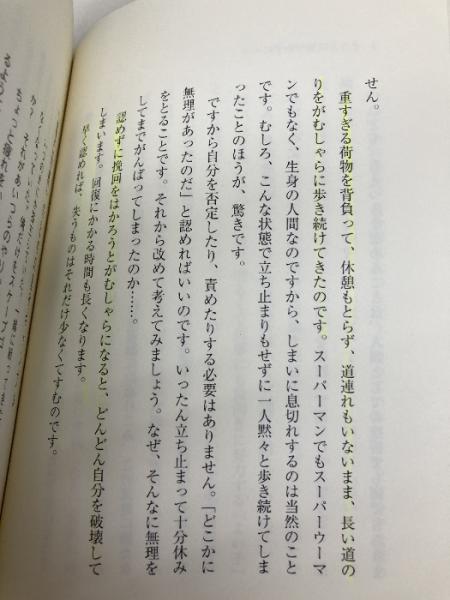 せん。
重すぎる荷物を背負って、休憩もとらず、道連れもいないまま、長い道の
りをがむしゃらに歩き続けてきたのです。スーパーマンでもスーパーウーマ
ンでもなく、生身の人間なのですから、しまいに息切れするのは当然のこと
です。むしろ、こんな状態で立ち止まりもせずに一人黙々と歩き続けてしま
ったことのほうが、驚きです。
ですから自分を否定したり、責めたりする必要はありません。「どこかに
無理があったのだ」と認めればいいのです。いったん立ち止まって十分休み
をとることです。それから改めて考えてみましょう。なぜ、そんなに無理を
してまでがんばってしまったのか……。
認めずに挽回をはかろうとがむしゃらになると、どんどん自分を破壊して
しまいます。回復にかかる時間も長くなります。
早く認めれば、失うものはそれだけ少なくてすむのです。